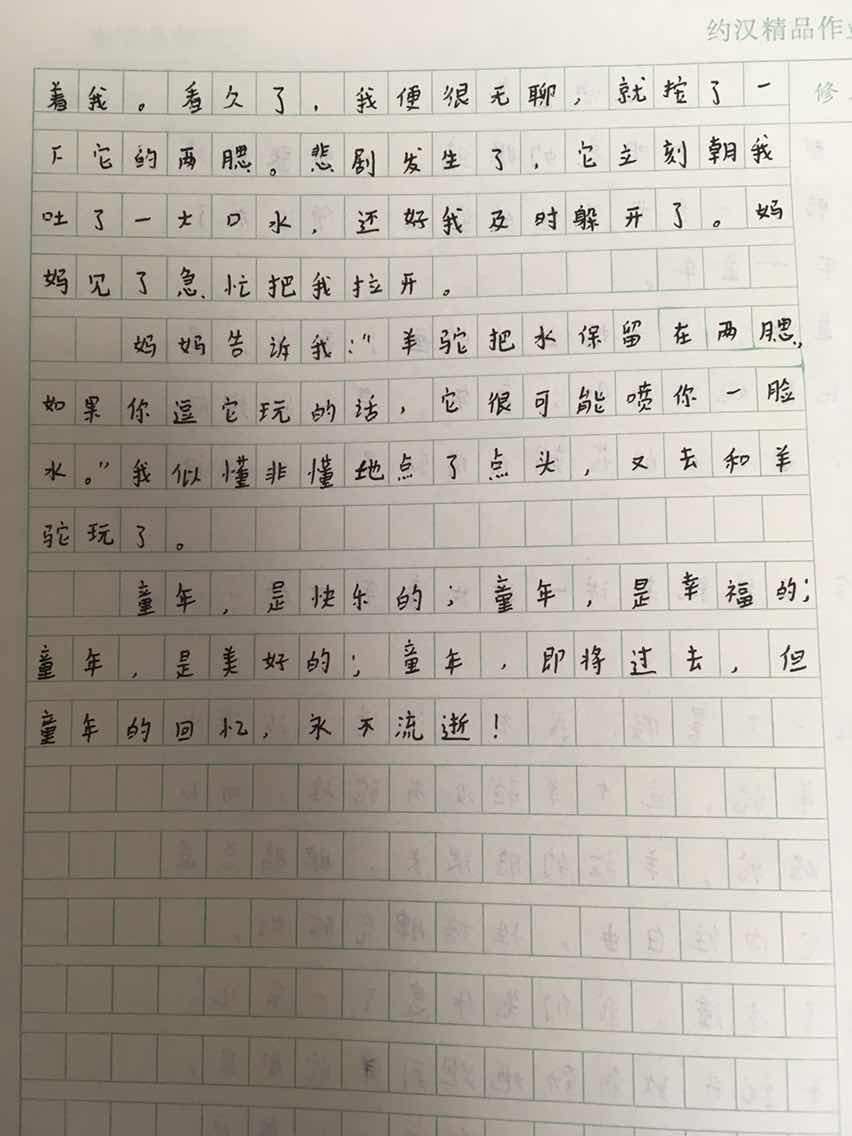 约汉精品作业
修
着我。看久了，我便很无聊，就挖了一
下它的两腮。悲剧发生了，它立刻朝我
吐了一大口水，还好我及时躲开了。妈
妈见了急忙把我拉开。
妈妈告诉我："羊驼把水保留在两腮，
如果你逗它玩的话，它很可能喷你一脸
水。"我似懂非懂地点了点头，又去和羊
驼玩了。
童年，是快乐的；童年，是幸福的；
童年，是美好的；童年，即将过去，但
童年的回忆，永不流逝！